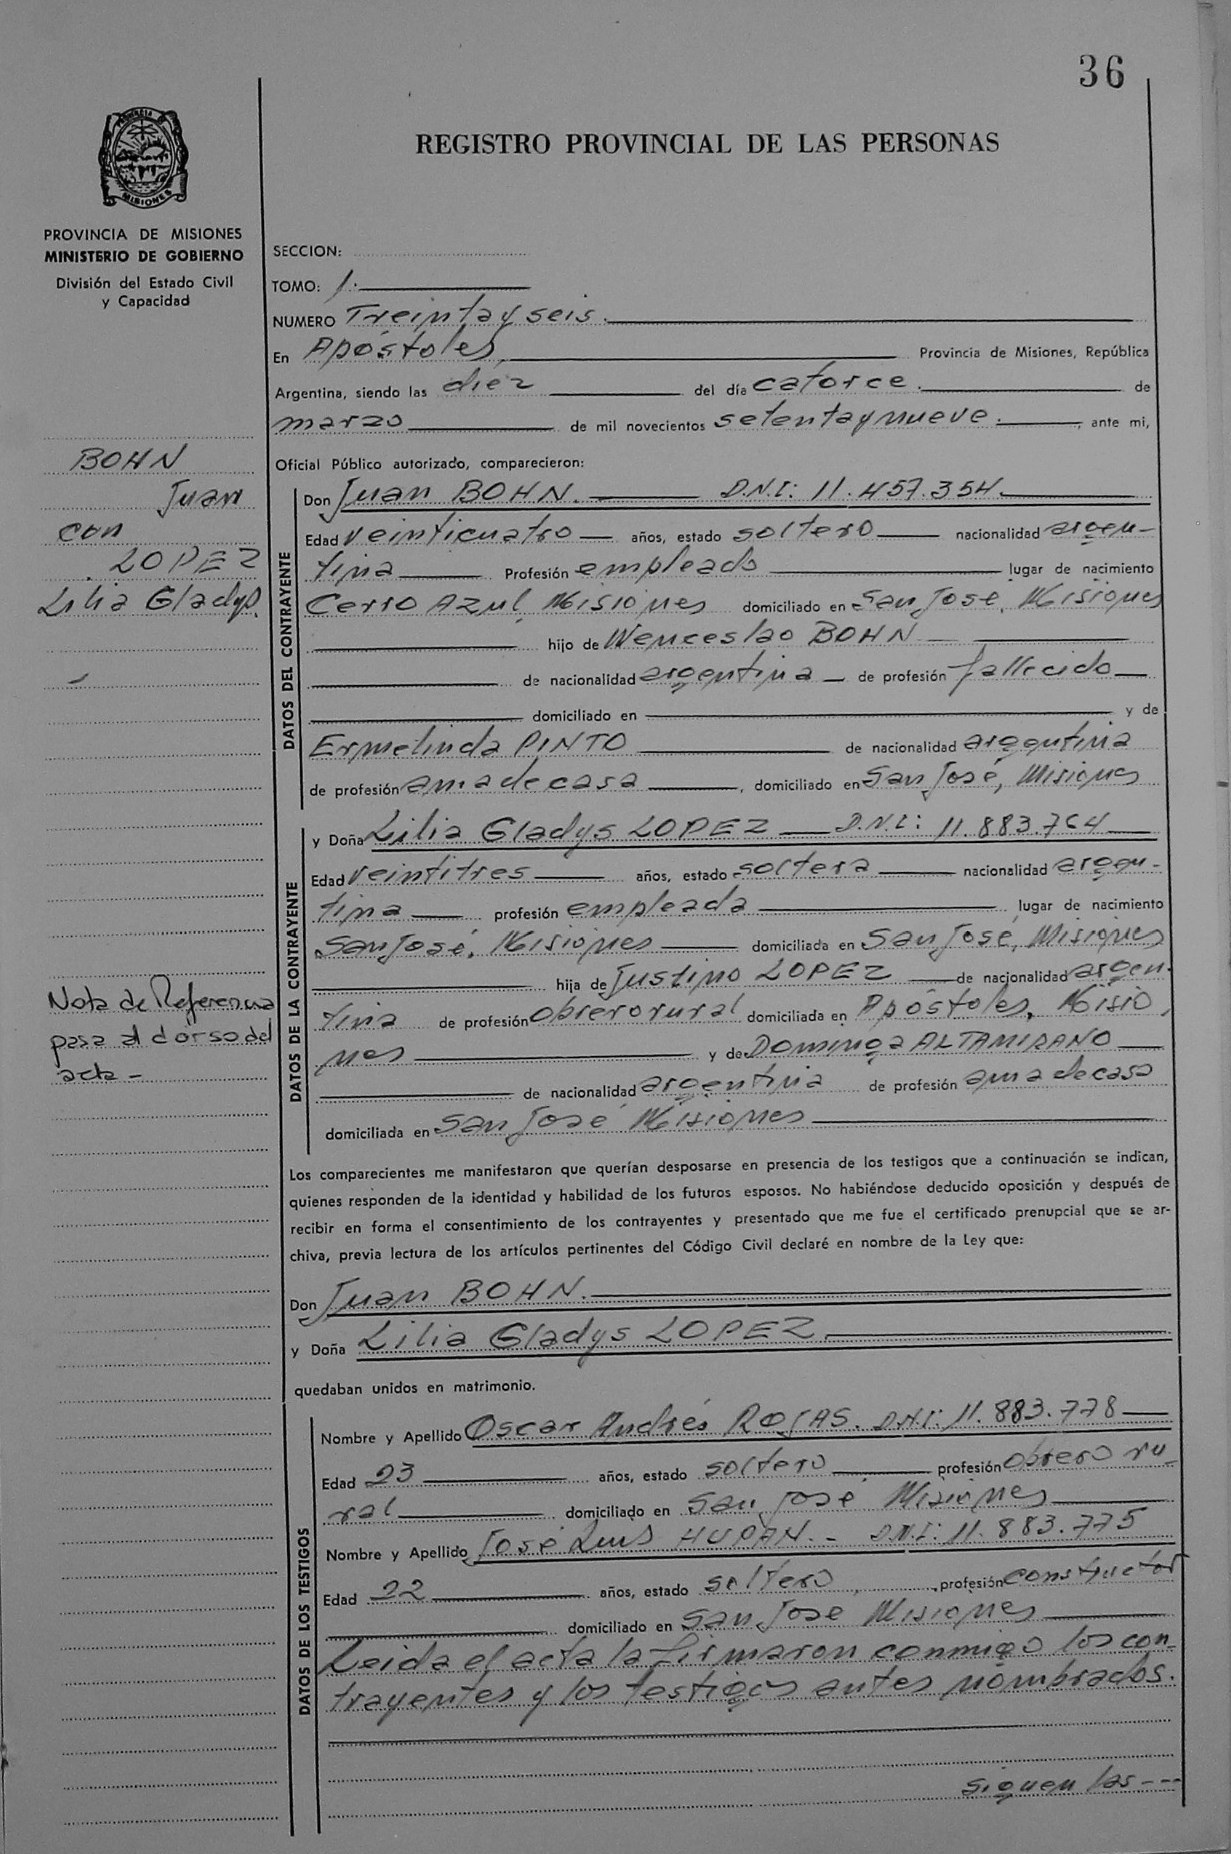 36
PROVINCIA DE
MISIONES
REGISTRO PROVINCIAL DE LAS PERSONAS
PROVINCIA DE MISIONES
MINISTERIO DE GOBIERNO
División del Estado Civil
y Capacidad
SECCION:
TOMO: 1.
NUMERO Treinta y seis.
En Apóstoles, Provincia de Misiones, República
Argentina, siendo las diez del día catorce. de
marzo de mil novecientos setenta y nueve. , ante mi,
Oficial Público autorizado, comparecieron:
BOHN
Juan
con
LOPEZ
Lilia Gladys.
DATOS DEL CONTRAYENTE
Don Juan BOHN. D.N.I: 11.457.354.
Edad veinticuatro años, estado soltero nacionalidad argen-
tina Profesión empleado lugar de nacimiento
Cerro Azul, Misiones domiciliado en San José, Misiones
hijo de Wenceslao BOHN
de nacionalidad argentina de profesión fallecido
domiciliado en y de
Ermelinda PINTO de nacionalidad argentina
de profesión ama de casa , domiciliado en San José, Misiones
DATOS DE LA CONTRAYENTE
y Doña Lilia Gladys LOPEZ D.N.I: 11.883.764
Edad veintitres años, estado soltera nacionalidad argen-
tina profesión empleada lugar de nacimiento
San José, Misiones domiciliada en San José, Misiones
hija de Justino LOPEZ de nacionalidad argen-
tina de profesión obrero rural domiciliada en Apóstoles, Misio
nes y de Dominga ALTAMIRANO
de nacionalidad argentina de profesión ama de casa
domiciliada en San José Misiones
Nota de Referencia
pasa al dorso del
acta -
Los comparecientes me manifestaron que querían desposarse en presencia de los testigos que a continuación se indican,
quienes responden de la identidad y habilidad de los futuros esposos. No habiéndose deducido oposición y después de
recibir en forma el consentimiento de los contrayentes y presentado que me fue el certificado prenupcial que se ar-
chiva, previa lectura de los artículos pertinentes del Código Civil declaré en nombre de la Ley que:
Don Juan BOHN.
y Doña Lilia Gladys LOPEZ
quedaban unidos en matrimonio.
DATOS DE LOS TESTIGOS
Nombre y Apellido Oscar Andrés ROJAS. D.N.I: 11.883.778
Edad 23 años, estado soltero profesión obrero ru-
ral domiciliado en San José Misiones
Nombre y Apellido José Luis HUPAN.- D.N.I: 11.883.775
Edad 22 años, estado soltero , profesión constructor
domiciliado en San José Misiones
Leida el acta la firmaron conmigo los con-
trayentes y los testigos antes nombrados.
siguen las ---